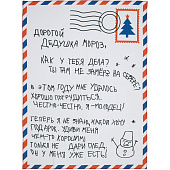 ДОРОГОЙ
ДЕДУШКА МОРОЗ,
КАК У ТЕБЯ ДЕЛА?
ТЫ ТАМ НЕ ЗАМЁРЗ НА СЕВЕРЕ?
В ЭТОМ ГОДУ МНЕ УДАЛОСЬ
ХОРОШО ПОТРУДИТЬСЯ.
ЧЕСТНО-ЧЕСТНО. Я-МОЛОДЕЦ!
ТЕПЕРЬ Я НЕ ЗНАЮ, КАКОЙ ХОЧУ
ПОДАРОК. УДИВИ МЕНЯ
ЧЕМ-ТО ХОРОШИМ!
ТОЛЬКО НЕ ДАРИ ПЛЕД,
ОН У МЕНЯ УЖЕ ЕСТЬ!